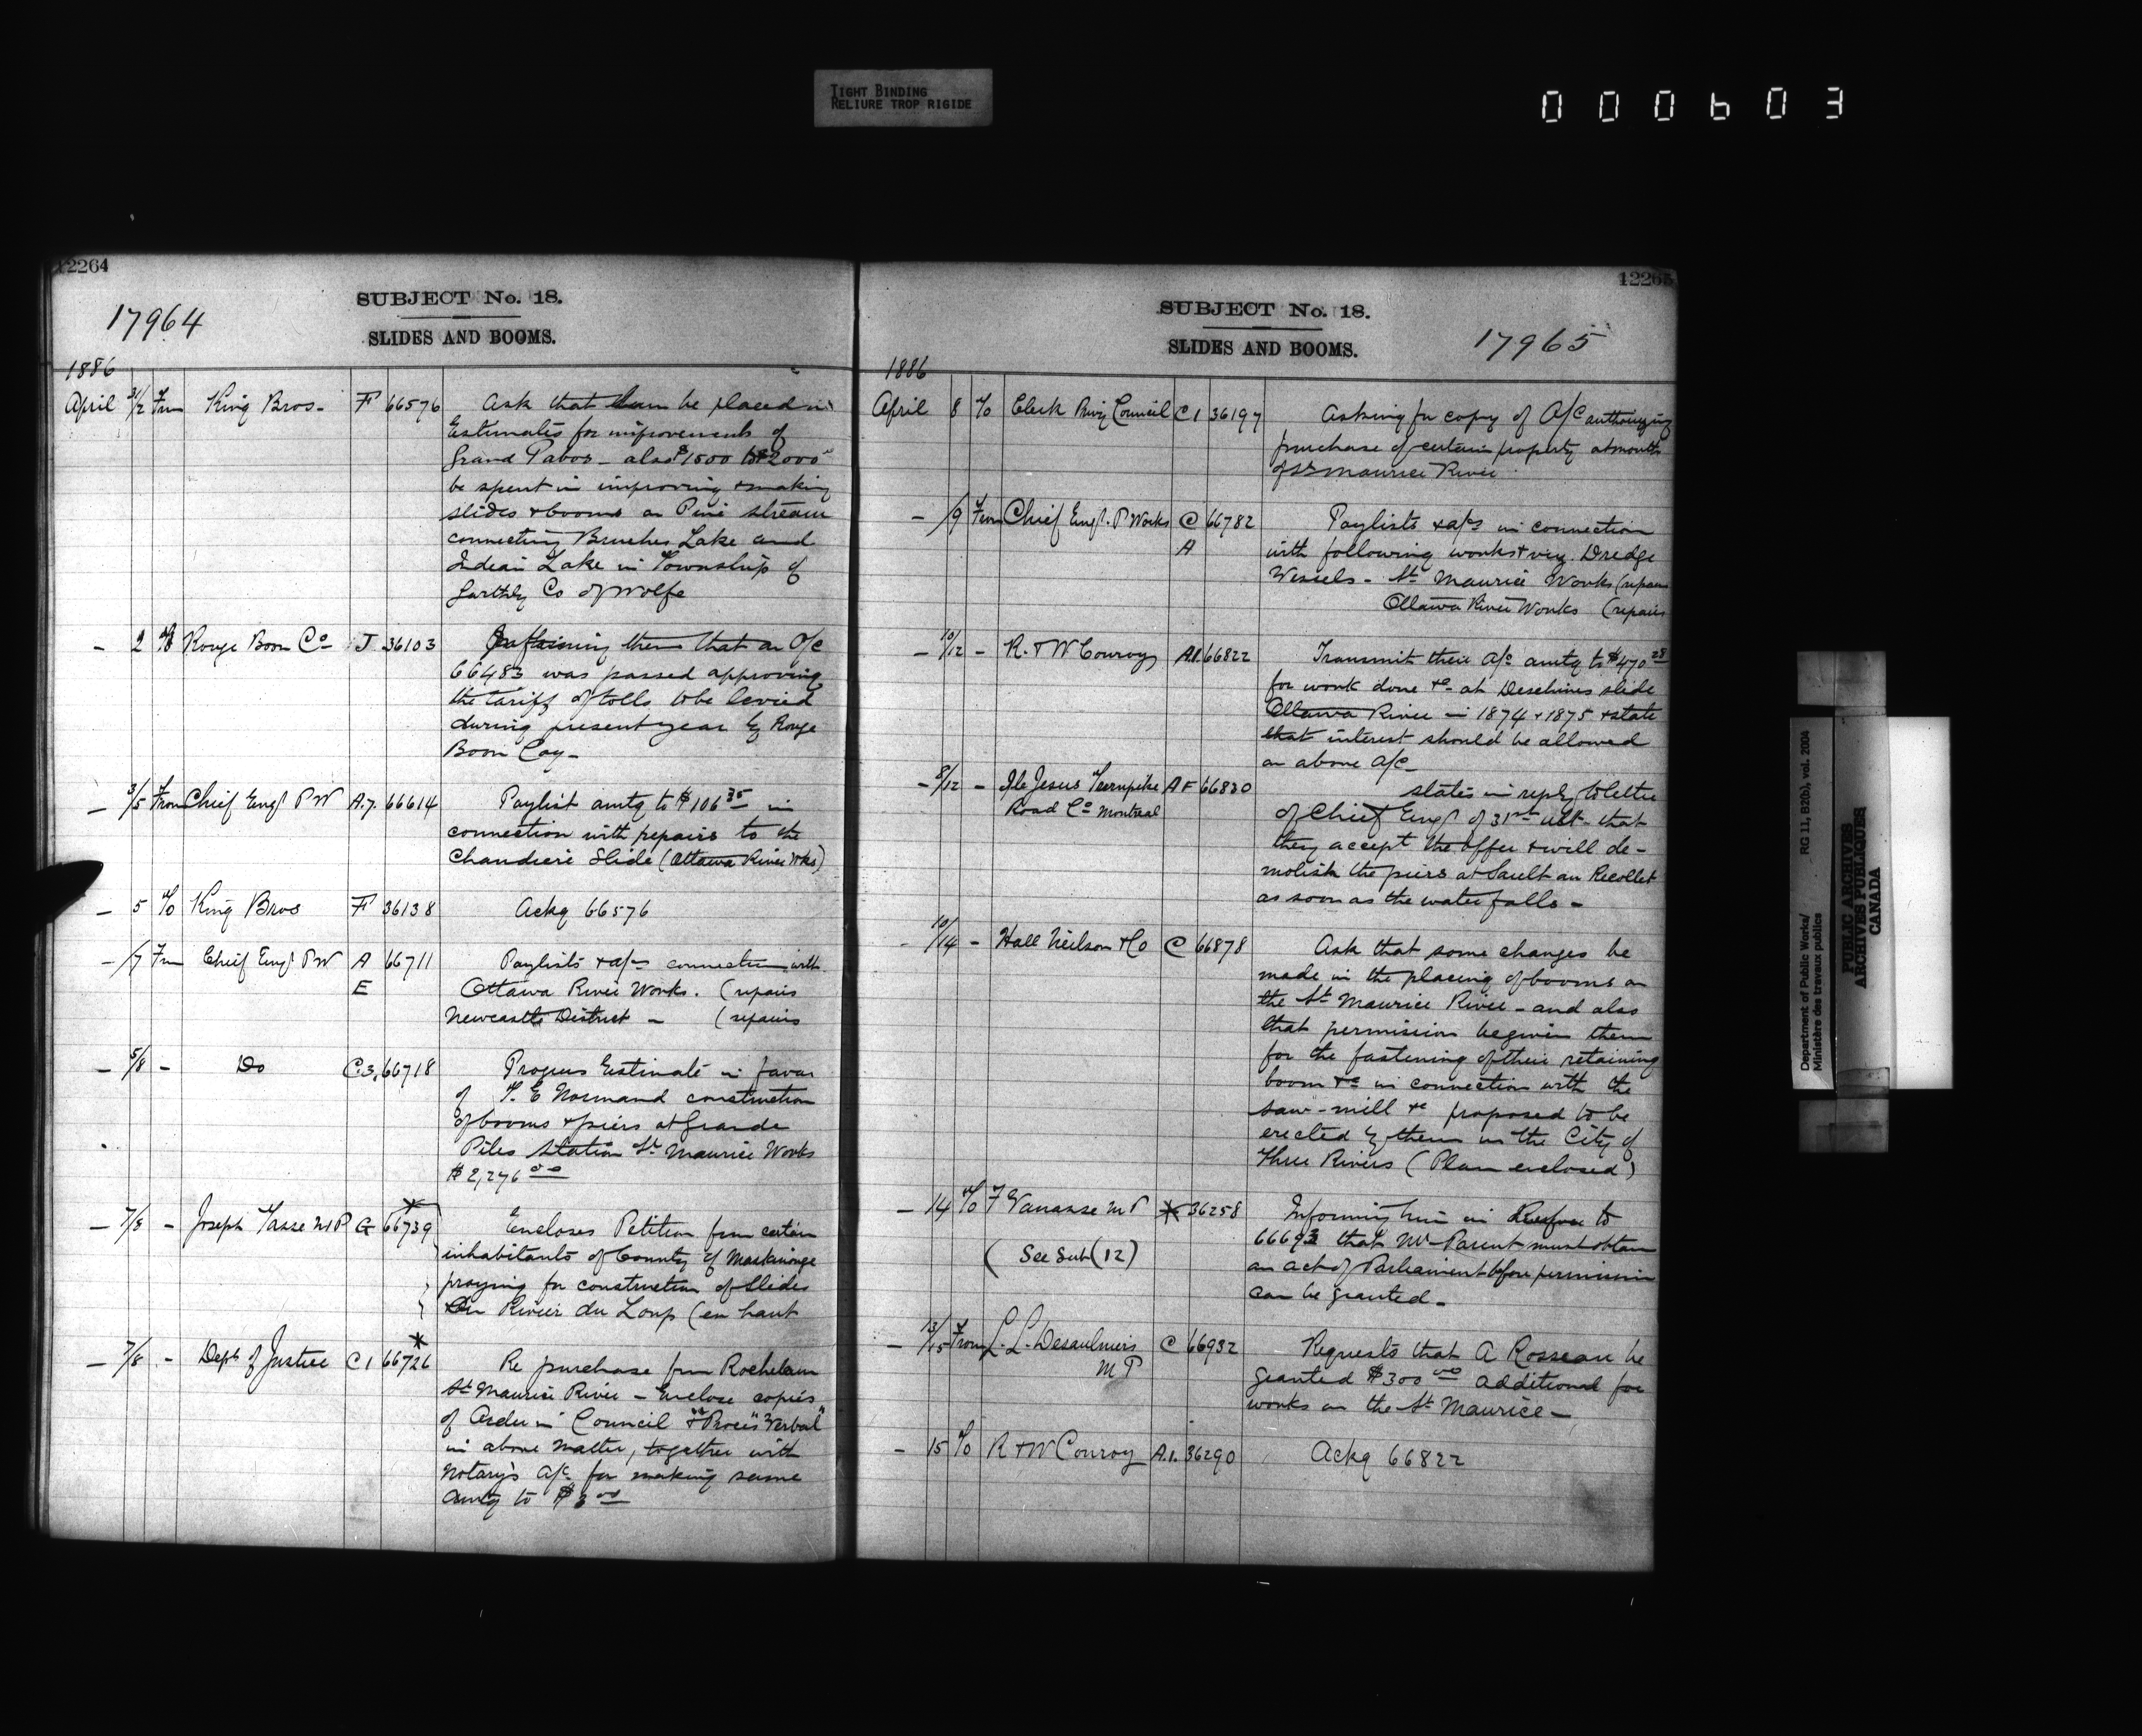 TIGHT BINDING
RELIURE TROP RIGIDE
000603
12264
SUBJECT No. 18.
17964
SLIDES AND BOOMS.
1886
April 31/2 From King Bros - F 66576 Ask that sum be placed in
Estimates for improvements of
Grand Pabos - also $1500 to $2000
be spent in improving & making
slides & booms on Pine stream
connecting Lake and
Indian Lake in Township of
Garthby Co of Wolfe
- 2 To Rouge Boom Co J 36103 Informing them that an O/C
66483 was passed approving
the tariff of tolls to be levied
during present year by Rouge
Boom Coy -
- 3/5 From Chief Engr P W A.7. 66614 Paylist amtg to $106 35 in
connection with repairs to the
Chaudiere Slide (Ottawa River Wks)
- 5 To King Bros F 36138 Ackg 66576
- /7 From Chief Engr P W A 66711 Paylists & a/cs connection with
E Ottawa River Works. (repairs
Newcastle District - (repairs
- 5/8 - Do C3. 66718 Progress Estimate in favor
of T. E Normand construction
of booms & piers at Grande
Piles Station St Maurice Works
$2,276 00
- 7/8 - Joseph Tasse M P G 66739 Encloses Petition from certain
inhabitants of County of Maskinonge
praying for construction of Slides
on Rivier du Loup (en haut
- 7/8 - Dept of Justice C1 66726 Re purchase from Rocheleau
St Maurice River - Enclose copies
of Order in Council & "Proces Verbal"
in above matter, together with
Notary's a/c for making same
amtg to $3 00
12265
SUBJECT No. 18.
17965
SLIDES AND BOOMS.
1886
April 8 To Clerk Privy Council C1 36197 Asking for copy of O/C authorizing
purchase of certain property at mouth
of St Maurice River
- /9 From Chief Engr. P Works C 66782 Paylists & a/cs in connection
A with following works & viz. Dredge
Vessels - St Maurice Works (repairs
Ottawa River Works (repairs
- 10/12 - R. & W Conroy A.1. 66822 Transmit their a/c amtg to $470 28
for work done &c at Deschenes slide
Ottawa River in 1874 & 1875 & state
that interest should be allowed
on above a/c -
- 8/12 - Ile Jesus Turnpike A F 66830 states in reply to letter
Road Co Montreal
of Chief Engr of 31st ult - that
they accept the offer & will de-
molish the piers at Sault au Recollet
as soon as the water falls -
- 10/14 - Hall Neilson & Co C 66878 Ask that some changes be
made in the placing of booms on
the St Maurice River - and also
that permission be given them
for the fastening of their retaining
boom &c in connection with the
saw-mill &c proposed to be
erected by them in the City of
Three Rivers (Plan enclosed)
- 14 To F Vanasse M P * 36258 Informing him in Refce to
(See Sub (12) 66693 that Mr Parent must obtain
an act of Parliament before permission
can be granted -
- 13/15 From L. L. Desaulniers C 66932 Requests that A Rosseau be
M P granted $300 00 additional for
works on the St Maurice -
- 15 To R & W Conroy A.1. 36290 Ackg 66822
Department of Public Works/
Ministère des travaux publics
RG 11, B2(b), vol. 2004
PUBLIC ARCHIVES
ARCHIVES PUBLIQUES
CANADA